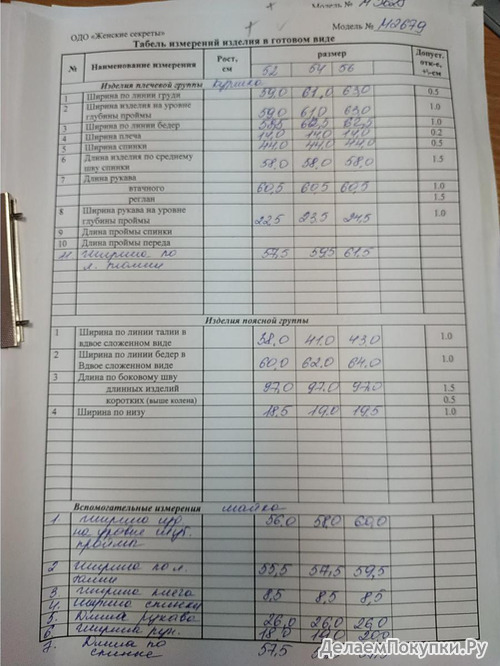 Модель №
ОДО «Женские секреты» Модель № М2679
Табель измерений изделия в готовом виде
№ Наименование измерения Рост, см размер Допуст. отк-е, +/-см
52 54 56
Изделия плечевой группы куртка
1 Ширина по линии груди 59,0 61,0 63,0 0.5
2 Ширина изделия на уровне 1.0
глубины проймы 59,0 61,0 63,0
3 Ширина по линии бедер 1.0
4 Ширина плеча 14,0 14,0 14,0 0.2
5 Ширина спинки 44,0 44,0 44,0 0.5
6 Длина изделия по среднему 1.5
шву спинки 58,0 58,0 58,0
7 Длина рукава
втачного 60,5 60,5 60,5 1.0
реглан 1.5
8 Ширина рукава на уровне 1.0
глубины проймы 22,5 23,5 24,5
9 Длина проймы спинки
10 Длина проймы переда
11 Ширина по 57,5 59,5 61,5
л. талии
Изделия поясной группы
1 Ширина по линии талии в 1.0
вдвое сложенном виде 38,0 41,0 43,0
2 Ширина по линии бедер в 1.0
Вдвое сложенном виде 60,0 62,0 64,0
3 Длина по боковому шву
длинных изделий 97,0 97,0 97,0 1.5
коротких (выше колена) 0.5
4 Ширина по низу 18,5 19,0 19,5 1.0
Вспомогательные измерения майка
1. Ширина 56,0 58,0 60,0
на уровне глуб.
проймы
2 Ширина по л. 55,5 57,5 59,5
талии
3 Ширина плеча 8,5 8,5 8,5
4. Ширина спинки
5. Длина рукава 26,0 26,0 26,0
6. Ширина рук. 18,0 19,0 20,0
7. Длина по 57,5
спинке
ДелаемПокупки.Ру